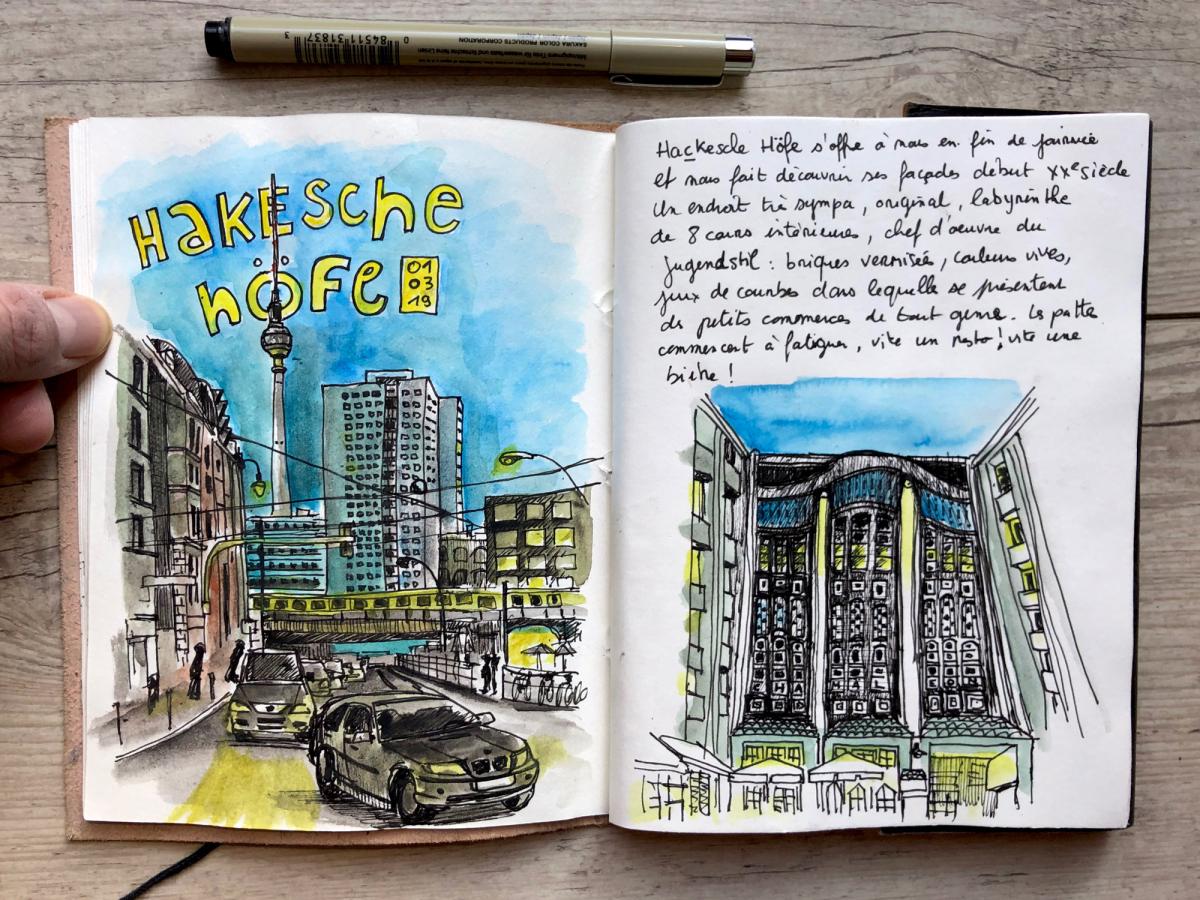 0 84511-31837 3
SAKURA COLOR PRODUCTS CORPORATION
HaKEsche
HöFe
01
03
19
Hackesche Höfe s'offre à nous en fin de journée
et nous fait découvrir ses façades début XXe siècle
Un endroit très sympa, original, labyrinthe
de 8 cours intérieures, chef d'oeuvre du
Jugendstil : briques vernisées, couleurs vives,
jeux de courbes dans lequelle se présentent
des petits commerces de tout genre. Les pattes
commencent à fatiguer, vite un resto ! vite une
bière !